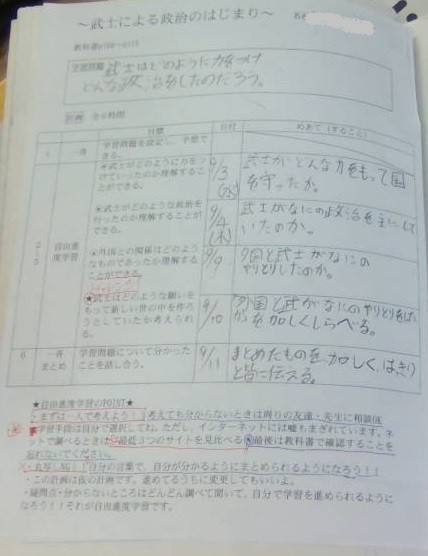 ～武士による政治のはじまり～
学習問題
武士はどのように力をつけ
どんな政治をしたのだろう。
計画 全6時間
目標 日付 めあて（すること）
1 一斉 学習問題を設定し、予想できる。
2～5 自由進度学習
★武士がどのように力をつけていったのか理解することができる。
9/3(水)
武士がどんな力をもって国
を守ったか。
★武士がどのような政治を行ったのか理解することができる。
9/4(木)
武士がなにの政治を主にして
いたのか。
★外国との関係はどのようなものであったか理解することができる。
9/9
外国と武士がなにの
やりとりしたのか。
チャレンジ
★武士はどのような願いをもって新しい世の中を作ろうとしていたか考えられる。
9/10
外国と武がなにのやりとりを
を加しくしらべる。
6 一斉まとめ 学習問題について分かったことを話し合う。
9/11
まとめたものを、加しく、はっきり
と皆に伝える。
★自由進度学習のPOINT★
・まずは一人で考えよう！！考えても分からないときは周りの友達・先生に相談OK
・学習手段は自分で選択してね。ただし、インターネットには嘘もまぎれています。ネ
ットで調べるときは①最低３つのサイトを見比べる②最後は教科書で確認することを
忘れないでください。
・丸写しNG！「自分の言葉で、自分が分かるようにまとめられるようになろう！！
・この計画は仮の計画です。進めてるうちに変更してもいいよ。
・疑問点・分からないところはどんどん調べて聞いて、自分で学習を進められるように
なろう！！それが自由進度学習です。